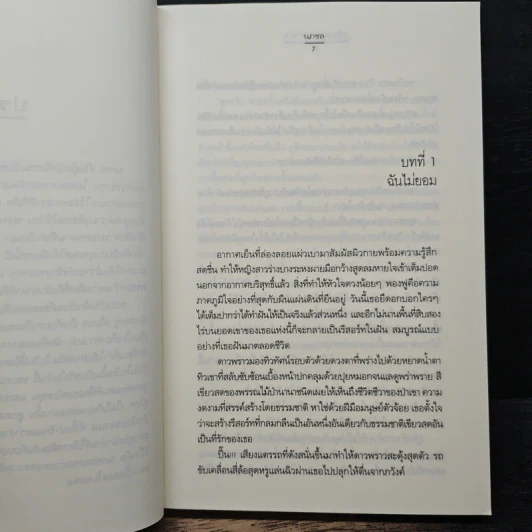 นภชล
7
บทที่ 1
ฉันไม่ยอม
อากาศเย็นที่ล่องลอยแผ่วเบามาสัมผัสผิวกายพร้อมความรู้สึก
สดชื่น ทำให้หญิงสาวร่างบางระหงผายมือกว้างสูดลมหายใจเข้าเต็มปอด
นอกจากอากาศบริสุทธิ์แล้ว สิ่งที่ทำให้หัวใจดวงน้อยๆ พองฟูคือความ
ภาคภูมิใจอย่างที่สุดกับผืนแผ่นดินที่ยืนอยู่ วันนี้เธอยืดอกบอกใครๆ
ได้เต็มปากว่าได้ทำฝันให้เป็นจริงแล้วส่วนหนึ่ง และอีกไม่นานพื้นที่สิบสอง
ไร่บนยอดเขาของเธอแห่งนี้ก็จะกลายเป็นรีสอร์ทในฝัน สมบูรณ์แบบ
อย่างที่เธอฝันมาตลอดชีวิต
ดาวพราวมองทิวทัศน์รอบตัวด้วยดวงตาที่พร่างไปด้วยหยาดน้ำตา
ทิวเขาที่สลับซับซ้อนเบื้องหน้าปกคลุมด้วยปุยหมอกจนแลดูพร่าพราย สี
เขียวสดของพรรณไม้ป่านานาชนิดเผยให้เห็นถึงชีวิตชีวาของป่าเขา ความ
งดงามที่สรรค์สร้างโดยธรรมชาติ หาใช่ด้วยฝีมือมนุษย์ตัวจ้อย เธอตั้งใจ
ว่าจะสร้างรีสอร์ทที่กลมกลืนเป็นอันหนึ่งอันเดียวกับธรรมชาติเขียวสดอัน
เป็นที่รักของเธอ
ปี๊น!!! เสียงแตรรถที่ดังสนั่นขึ้นมาทำให้ดาวพราวสะดุ้งสุดตัว รถ
ขับเคลื่อนสี่ล้อสุดหรูแล่นฉิวผ่านเธอไปปลุกให้ตื่นจากภวังค์